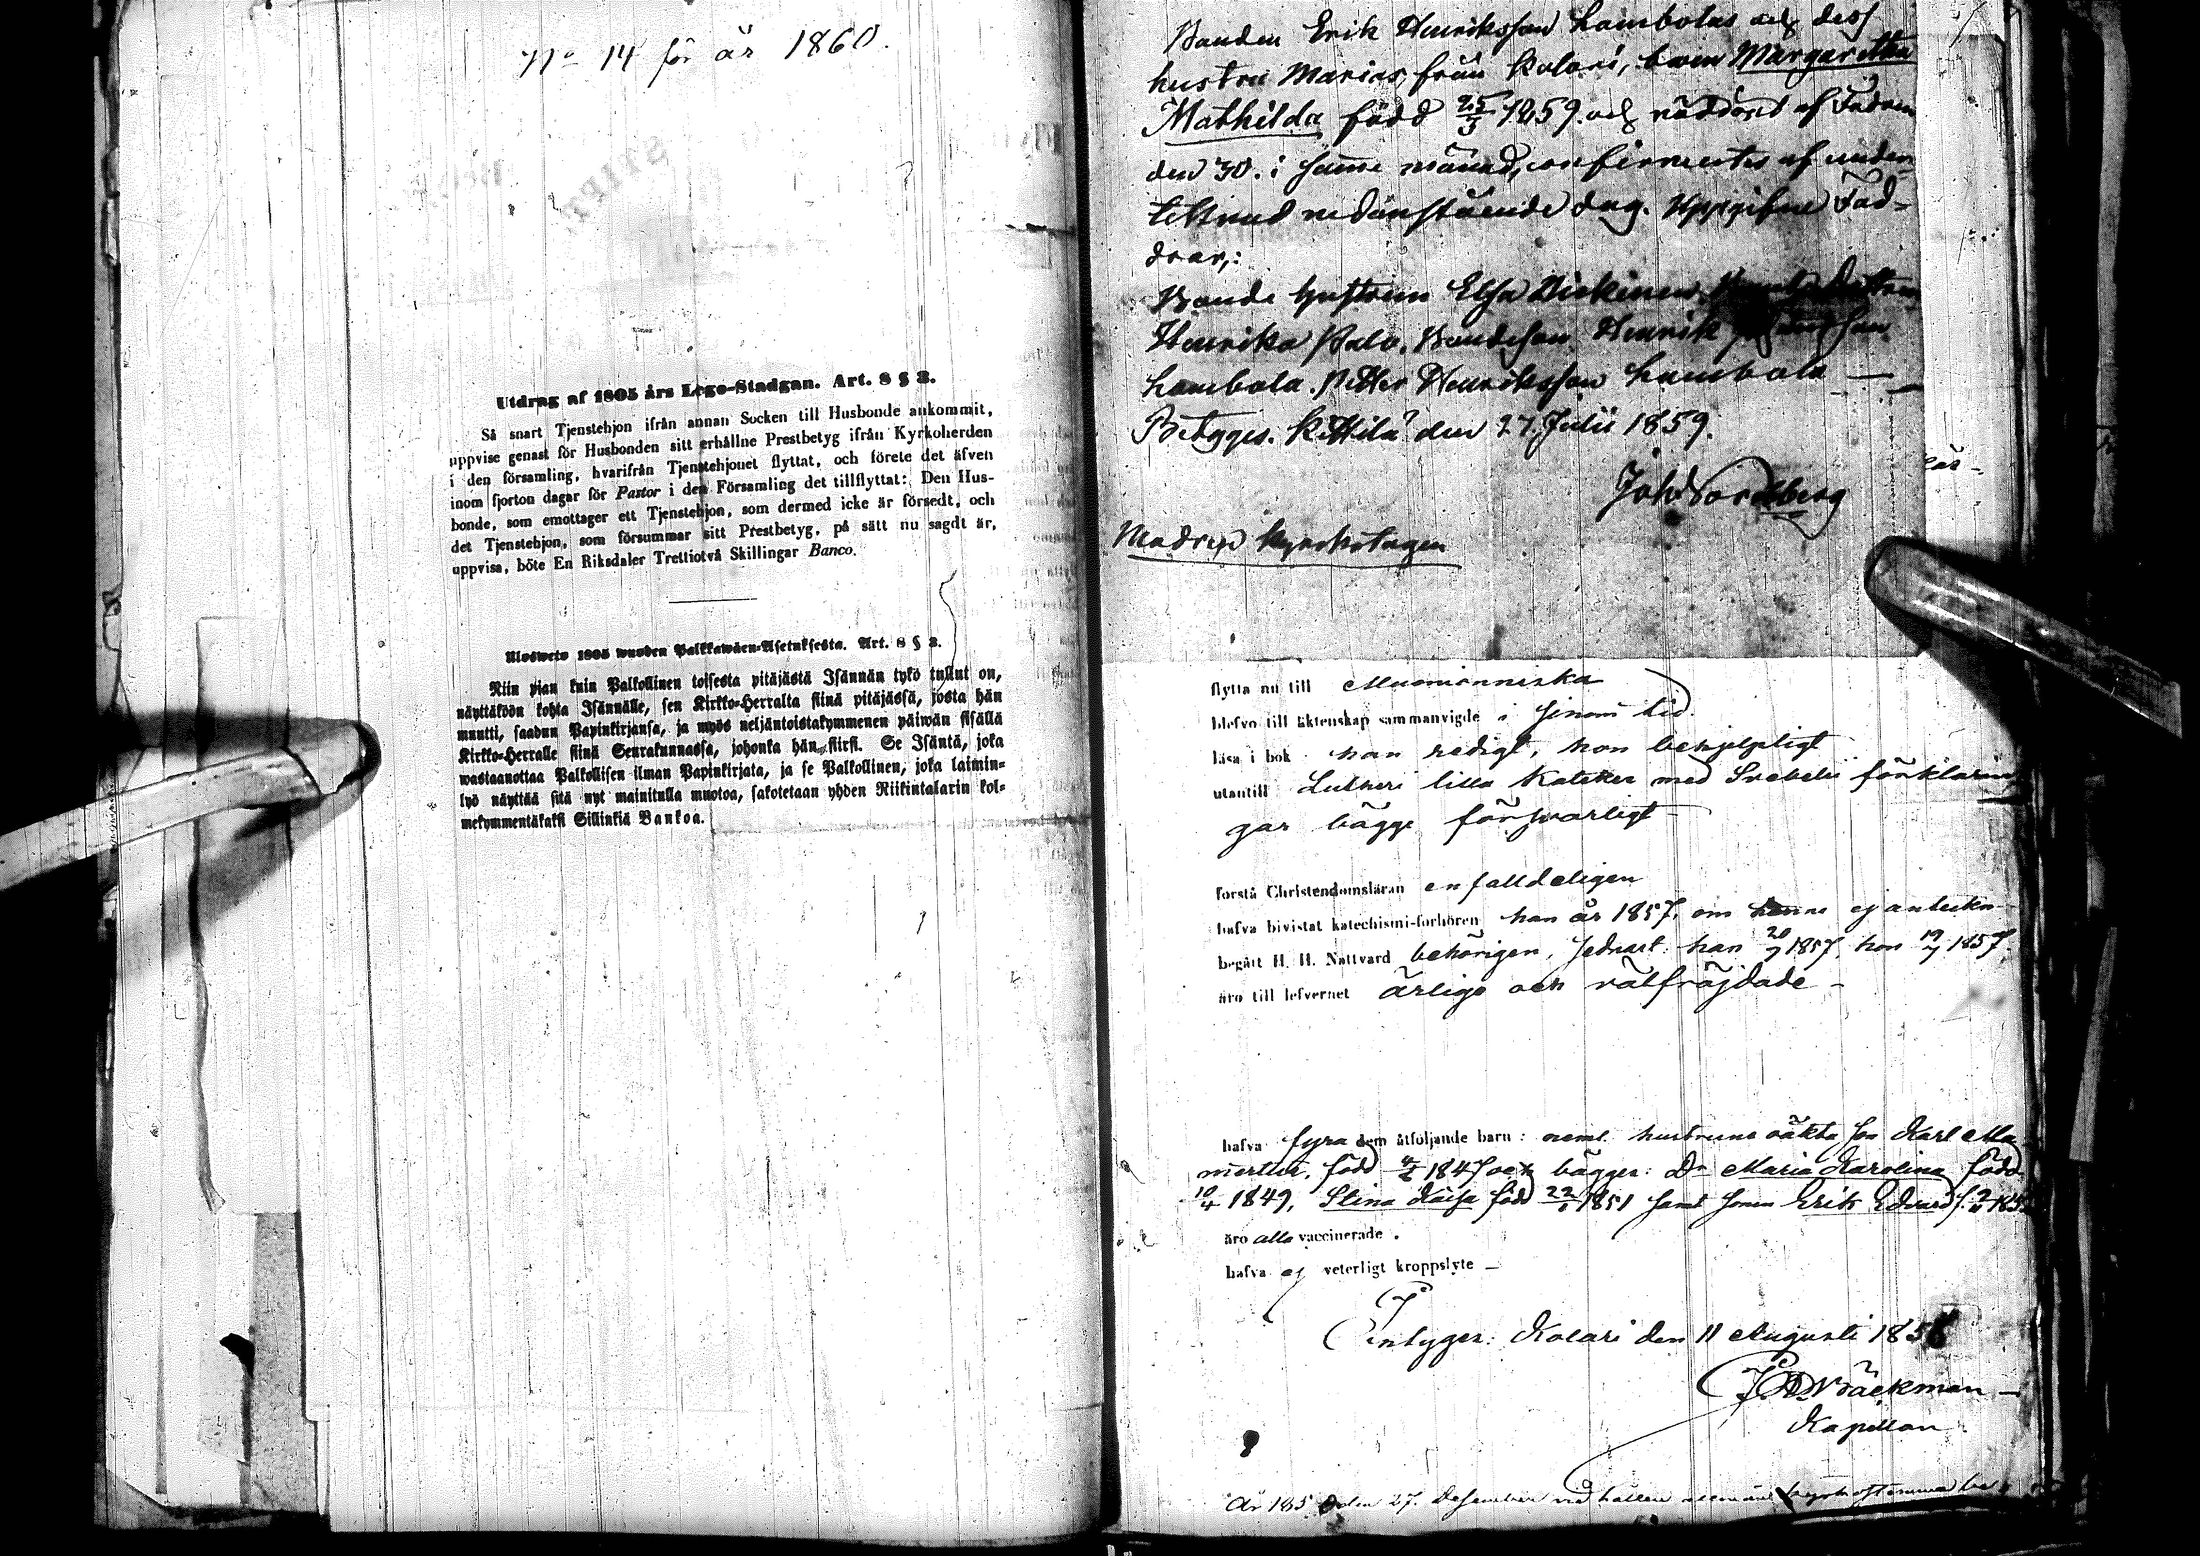 No 14 för år 1860.
Utdrag af 1805 års Lego-Stadgan. Art. 8 § 3.
Så snart Tjenstehjon ifrån annan Socken till Husbonde ankommit,
uppvise genast för Husbonden sitt erhållne Prestbetyg ifrån Kyrkoherden
i den församling, hvarifrån Tjenstehjonet flyttat, och förete det äfven
inom fjorton dagar för Pastor i den Församling det tillflyttat: Den Hus-
bonde, som emottager ett Tjenstehjon, som dermed icke är försedt, och
det Tjenstehjon, som försummar sitt Prestbetyg, på sätt nu sagdt är,
uppvisa, böte En Riksdaler Trettiotvå Skillingar Banco.
Ulosweto 1805 wuoden Palkkawäen-Asetuksesta. Art. 8 § 3.
Niin pian kuin Palkollinen toisesta pitäjästä Isännän tykö tullut on,
näyttäköön kohta Isännälle, sen Kirkko-Herralta siinä pitäjässä, josta hän
muutti, saadun Papinkirjansa, ja myös neljäntoistakymmenen päiwän sisällä
Kirkko-Herralle siinä Seurakunnassa, johonka hän siirsi. Se Isäntä, joka
wastaanottaa Palkollisen ilman Papinkirjata, ja se Palkollinen, joka laimin-
lyö näyttää sitä nyt mainitulla muotoa, sakotetaan yhden Riikintalarin kol-
mekymmentäkaksi Sillinkiä Bankoa.
Bonden Erik Henriksson Lambolas och dess
hustru Marias, från Kolari, barn Margaretha
Mathilda född 25/3 1859 och nöddöpt af Fadren
den 30. i samme månad, confirmertes af under-
teknad nedanstående dag. Uppgifne Fad-
drar,:
Bonde hustrun Elsa
Henrika Palo. Bondeson Henrik
Lambola. Petter Henriksson Lambola —
Betygges. Kittilä den 27 Julii 1859.
Joh Nordberg
Modren kyrkotagen
flytta nu till Muonionniska
blefvo till äktenskap sammanvigde i sinom tid.
läsa i bok han redigt, hon behjelpligt
utantill Lutheri lilla Kateker med Svebelii förklarin
gar bägge försvarligt —
förstå Christendomsläran enfalldeligen
hafva bivistat katechismi-förhören han år 1857, om henne ej anteckn
begått H. H. Nattvard behörigen, sednast: han 20/7 1857, hon 19/7 1857.
äro till lefvernet ärlige och välfräjdade —
hafva fyra dem åtföljande barn: neml. hustruns oäkta son Karl
född 1847 och bägges: Dn Maria Karolina född
10/4 1849, Stina Kajsa född 1851 samt sonen Erik Edvard
äro alla vaccinerade.
hafva ej veterligt kroppslyte —
intyger: Kolari den 11 Augusti 185
Bäckman —
Kapellan.
År 185 den 27. December vid hållen allmän kyrkostämma